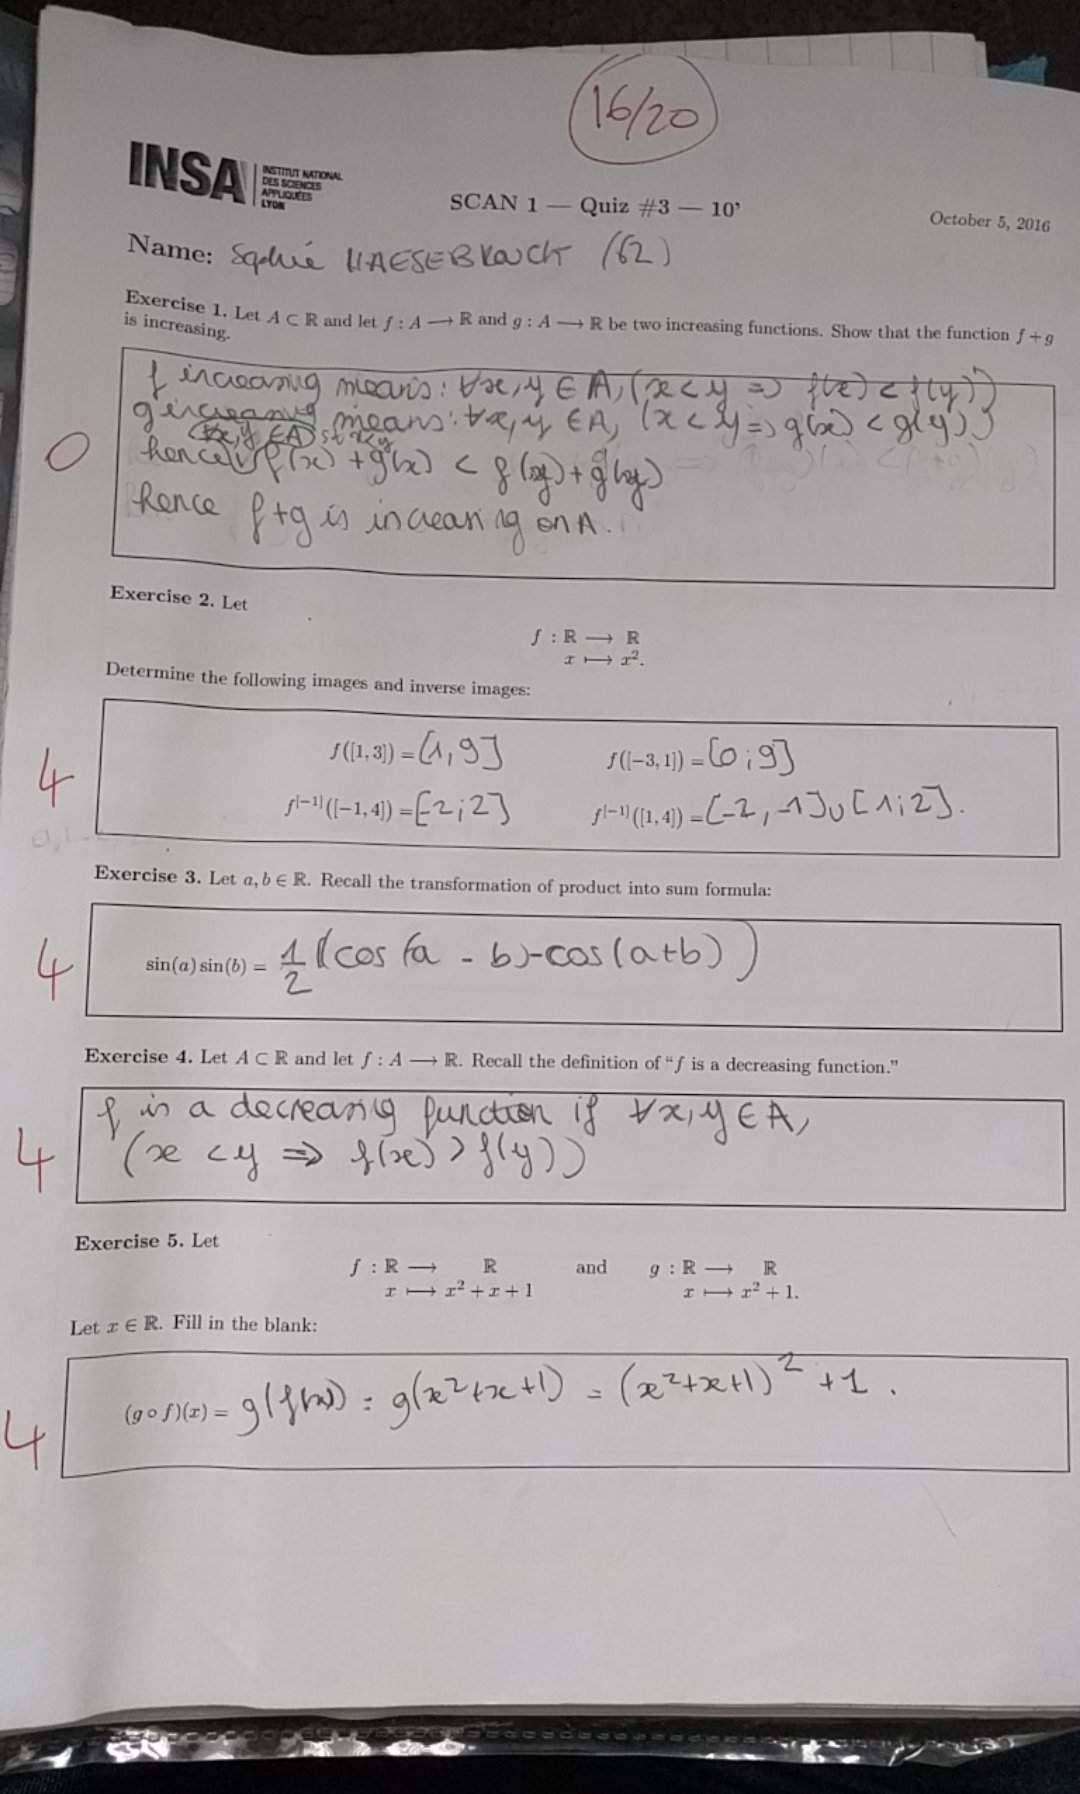 16/20
INSA INSTITUT NATIONAL
DES SCIENCES
APPLIQUÉES
LYON
SCAN 1 — Quiz #3 — 10'
October 5, 2016
Name: Sophie HAESEBROUCK (62)
Exercise 1. Let A ⊂ ℝ and let f : A ⟶ ℝ and g : A ⟶ ℝ be two increasing functions. Show that the function f + g
is increasing.
f increasing means: ∀x, y ∈ A, (x < y ⇒ f(x) < f(y))
g increasing means: ∀x, y ∈ A, (x < y ⇒ g(x) < g(y))
∀x, y ∈ A s.t x<y
0
hence f(x) + g(x) < f(y) + g(y)
hence f+g is increasing on A.
Exercise 2. Let
f : ℝ ⟶ ℝ
x ⟼ x².
Determine the following images and inverse images:
f([1, 3]) = [1, 9] f([−3, 1]) = [0; 9]
4
f^[−1]([−1, 4]) = [-2; 2] f^[−1]([1, 4]) = [-2, -1] ∪ [1; 2].
Exercise 3. Let a, b ∈ ℝ. Recall the transformation of product into sum formula:
4 sin(a) sin(b) = 1/2 (cos(a - b) - cos(a+b))
Exercise 4. Let A ⊂ ℝ and let f : A ⟶ ℝ. Recall the definition of “f is a decreasing function.”
f is a decreasing function if ∀x, y ∈ A,
4 (x < y ⇒ f(x) > f(y))
Exercise 5. Let
f : ℝ ⟶ ℝ and g : ℝ ⟶ ℝ
x ⟼ x² + x + 1 x ⟼ x² + 1.
Let x ∈ ℝ. Fill in the blank:
4 (g ∘ f)(x) = g(f(x)) = g(x²+x+1) = (x²+x+1)² + 1.